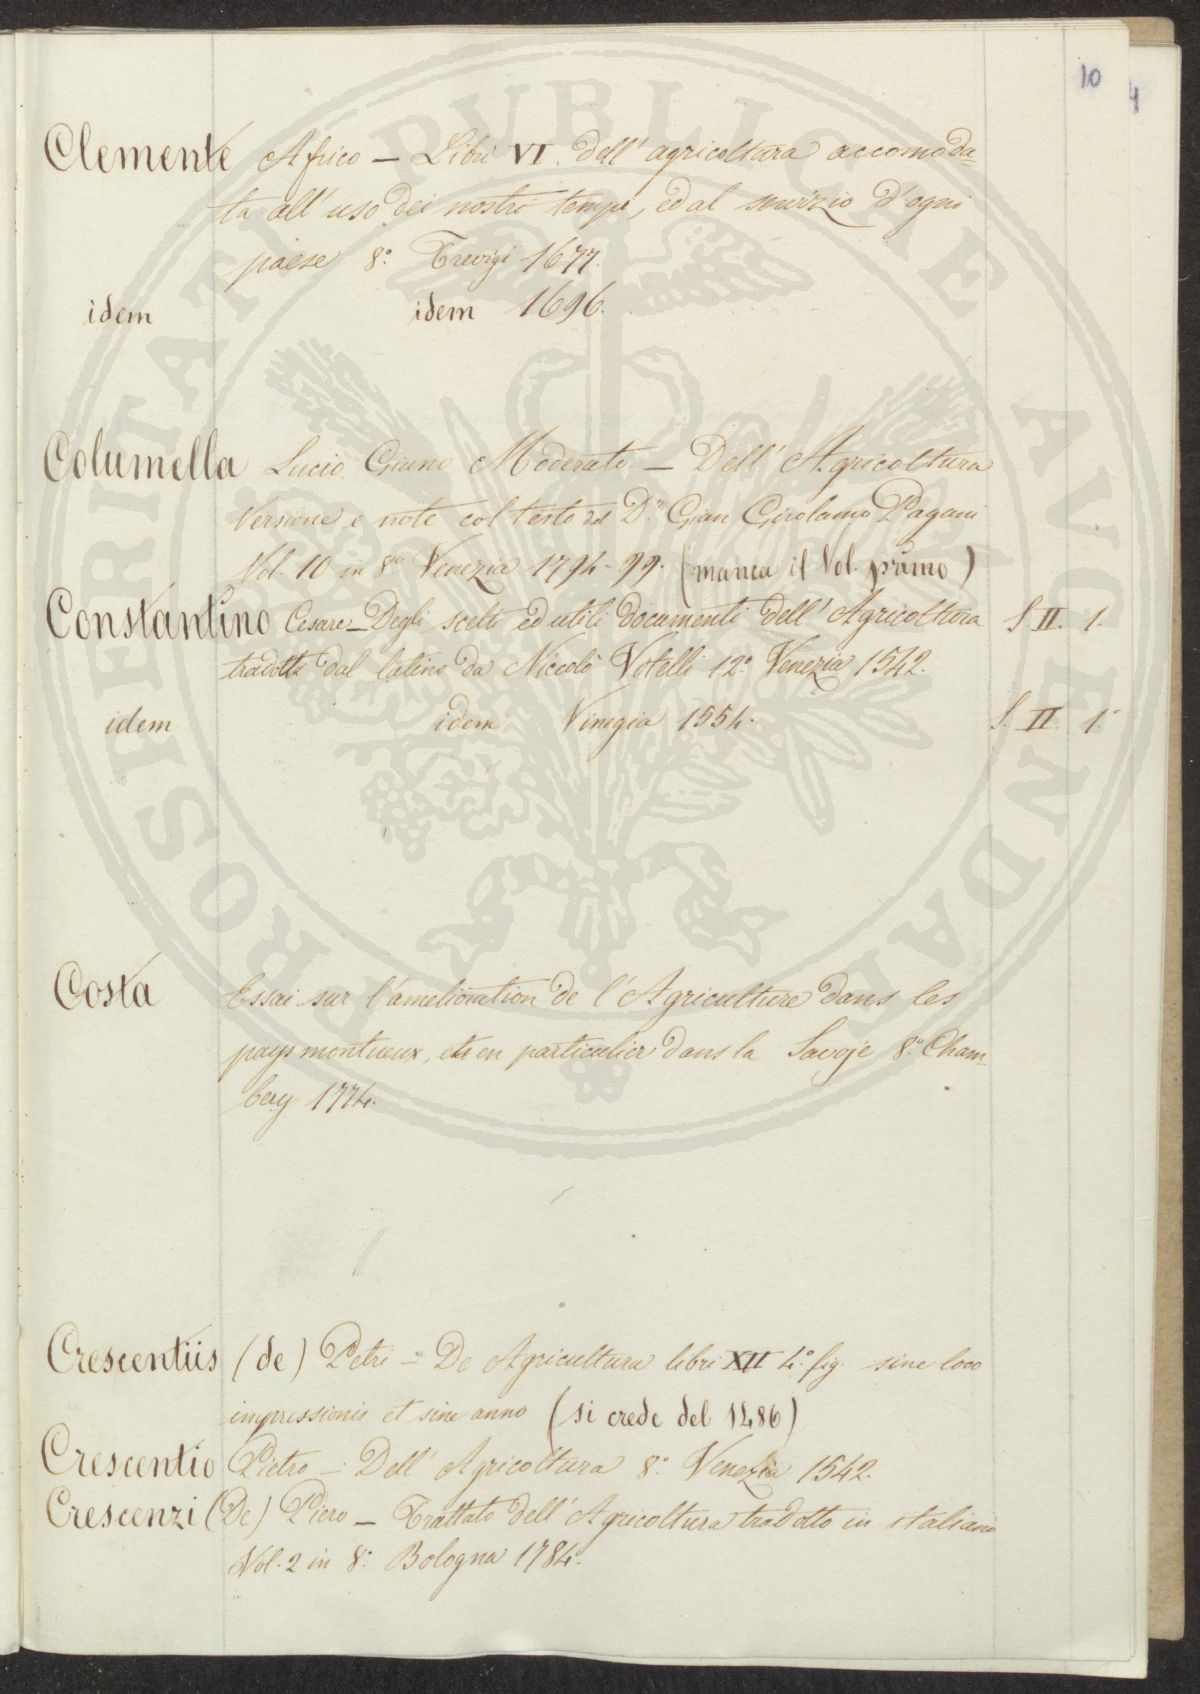 10
4
Clemente Africo – Libri VI. dell' agricoltura accomoda=
ta all' uso dei nostri tempi, ed al servizio d' ogni
paese 8.° Trevigi 1677.
idem idem 1696.
Columella Lucio Giuno Moderato – Dell' Agricoltura
Versione e note col testo del D.r Gian Girolamo Pagani
Vol. 10 in 8.° Venezia 1794-99. (manca il Vol. primo)
Constantino Cesare – Degli scelti ed utili documenti dell' Agricoltura S II. 1.
tradotti dal latino da Niccolò Votelli 12.° Venezia 1542.
idem idem Vinegia 1554. S. II. 1.°
Costa Essai sur l'amelioration de l'Agriculture dans les
pays montueux, et en particulier dans la Savoje 8.° Cham=
bery 1774.
Crescentiis (de) Petri – De Agricultura libri XII 4.° fig. sine loco
impressionis et sine anno (si crede del 1486)
Crescentio Pietro – Dell' Agricoltura 8.° Venezia 1542.
Crescenzi (De) Piero – Trattato dell' Agricoltura tradotto in italiano
Vol. 2 in 8.° Bologna 1784.
PROSPERITATI PUBLICAE AVGENDAE